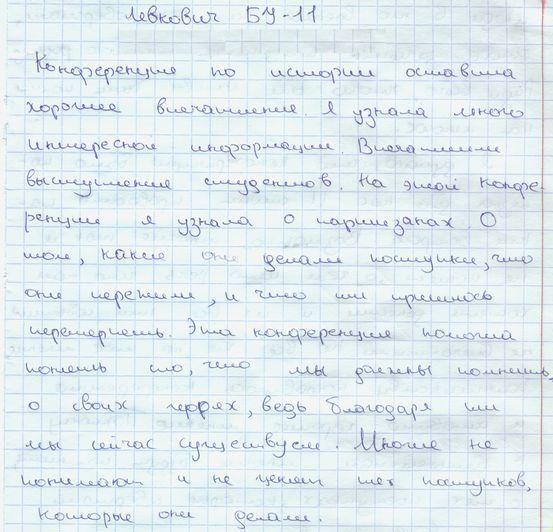 Левкович БУ-11
Конференция по истории оставила
хорошее впечатление. Я узнала много
интересной информации. Впечатлили
выступления студентов. На этой конфе-
ренции я узнала о партизанах. О
том, какие они делали поступки, что
они пережили, и что им пришлось
перетерпеть. Эта конференция помогла
понять то, что мы должны помнить
о своих героях, ведь благодаря им
мы сейчас существуем. Многие не
понимают и не ценят тех поступков,
которые они делали.